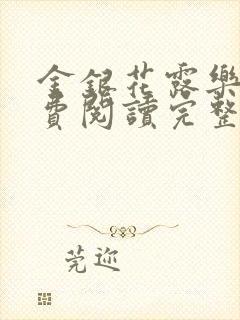 金銀花露樂
費閱讀完整
莞迩